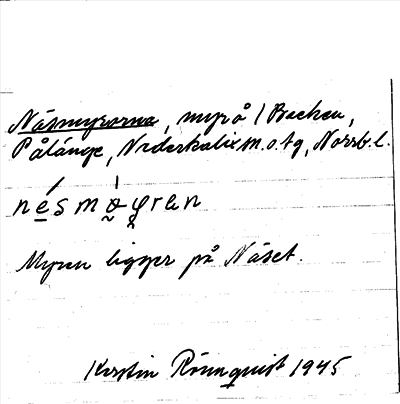 Näsmyrorna, myrå / Backen,
Pålänge, Nederkalix m.o.tg, Norrb.l.
nésmøyrən
Myren ligger på Näset.
Kerstin Rönnquist 1945